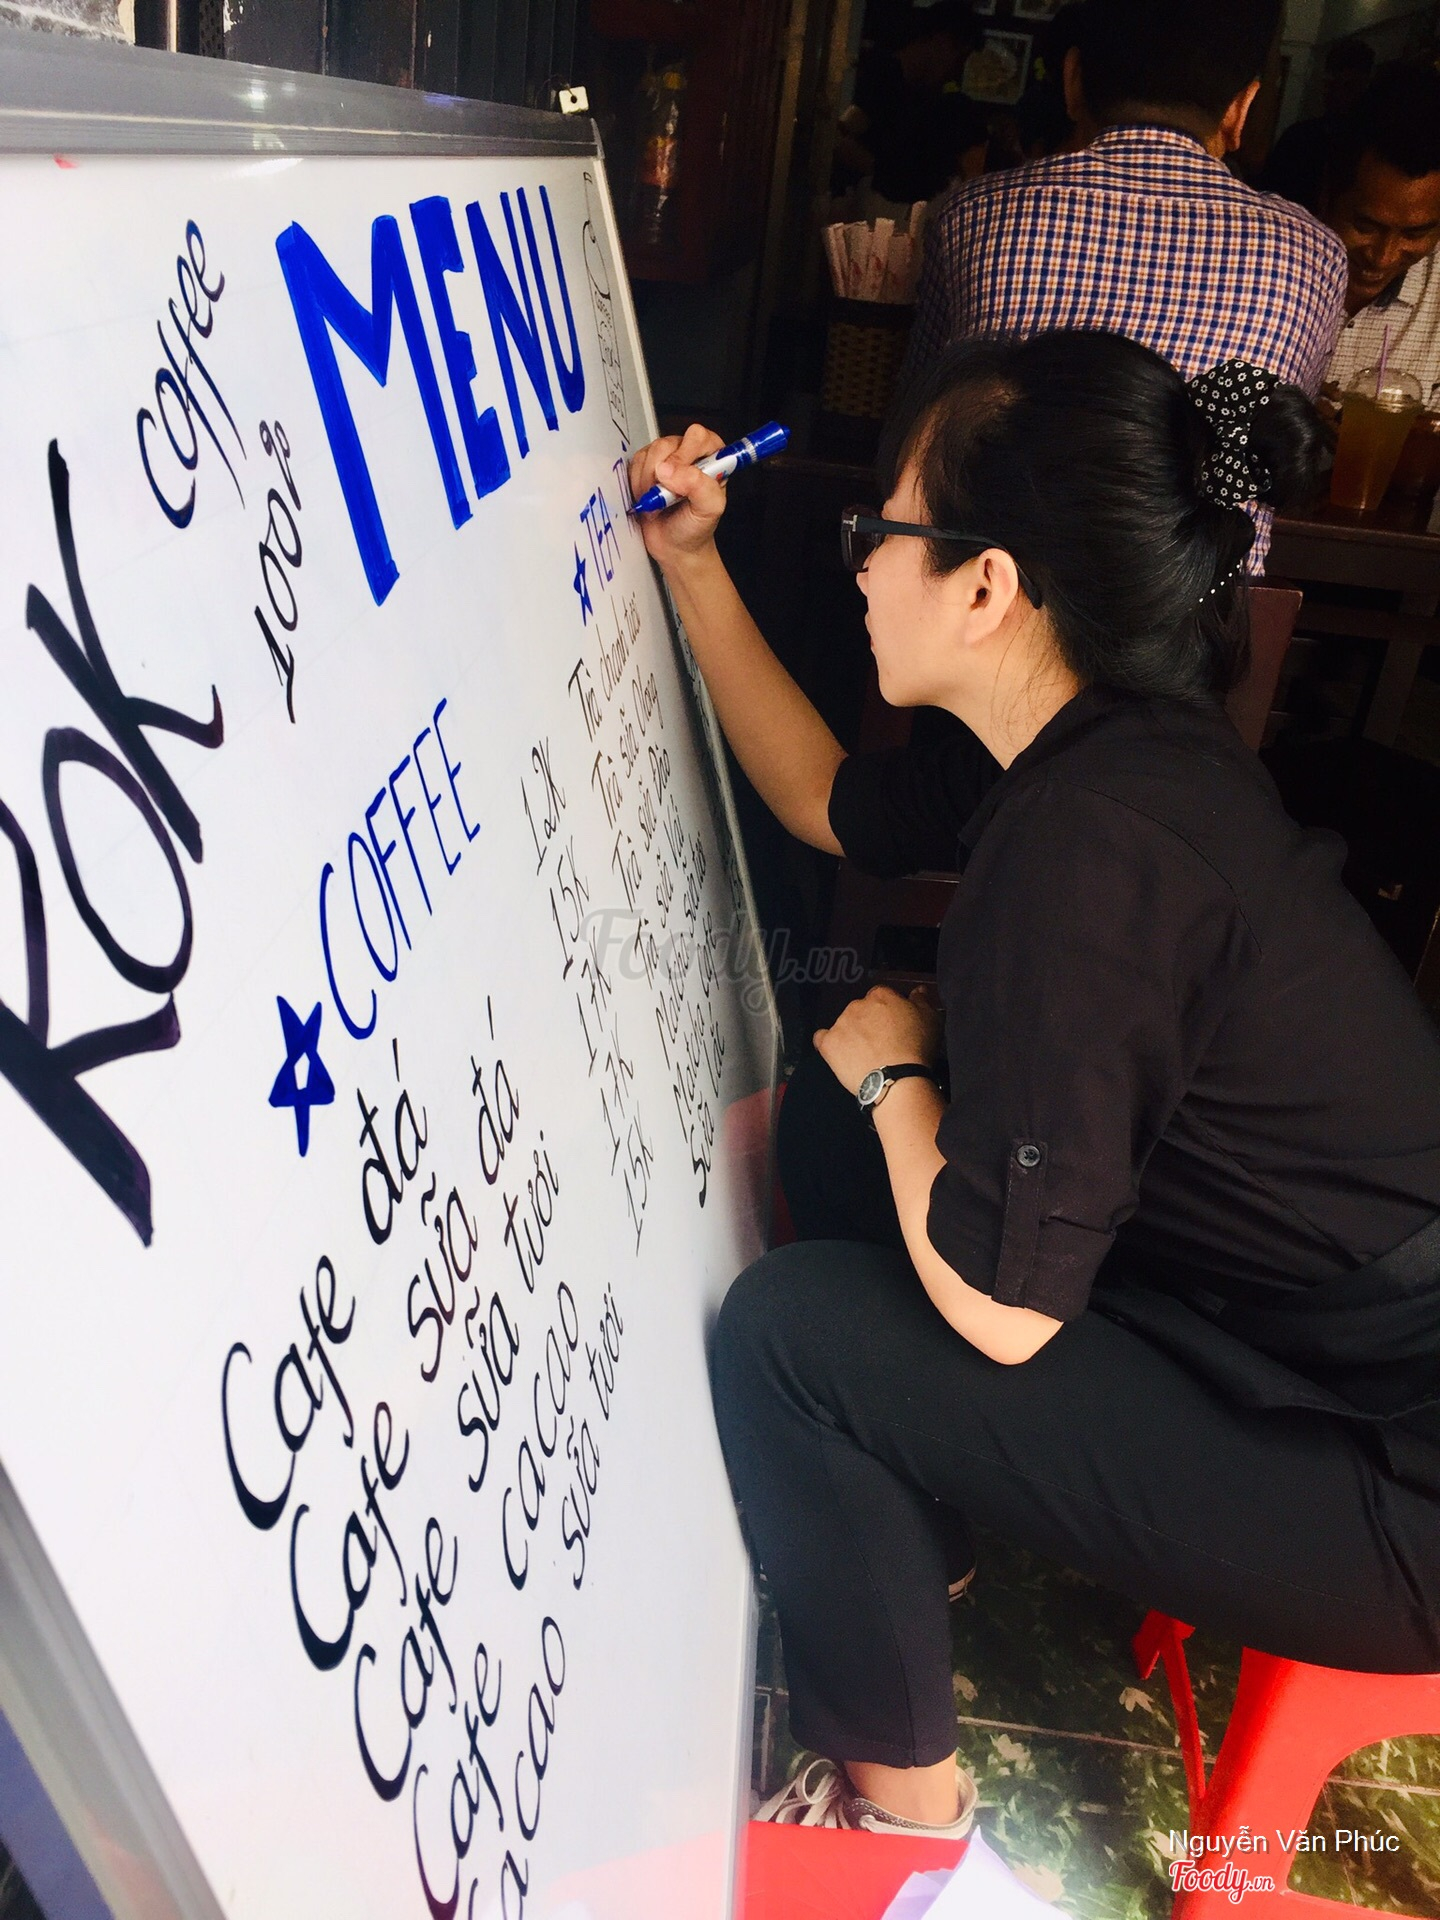 ROK coffee
100%
MENU
★ COFFEE
Cafe đá 12K
Cafe sữa đá 15K
Cafe sữa tươi 17K
Cafe cacao 17K
Cacao sữa tươi 15K
★ TEA
Trà chanh tươi
Trà sữa Olong
Trà sữa Đào
Trà sữa Vải
Foody.vn
Nguyễn Văn Phúc
Foody.vn